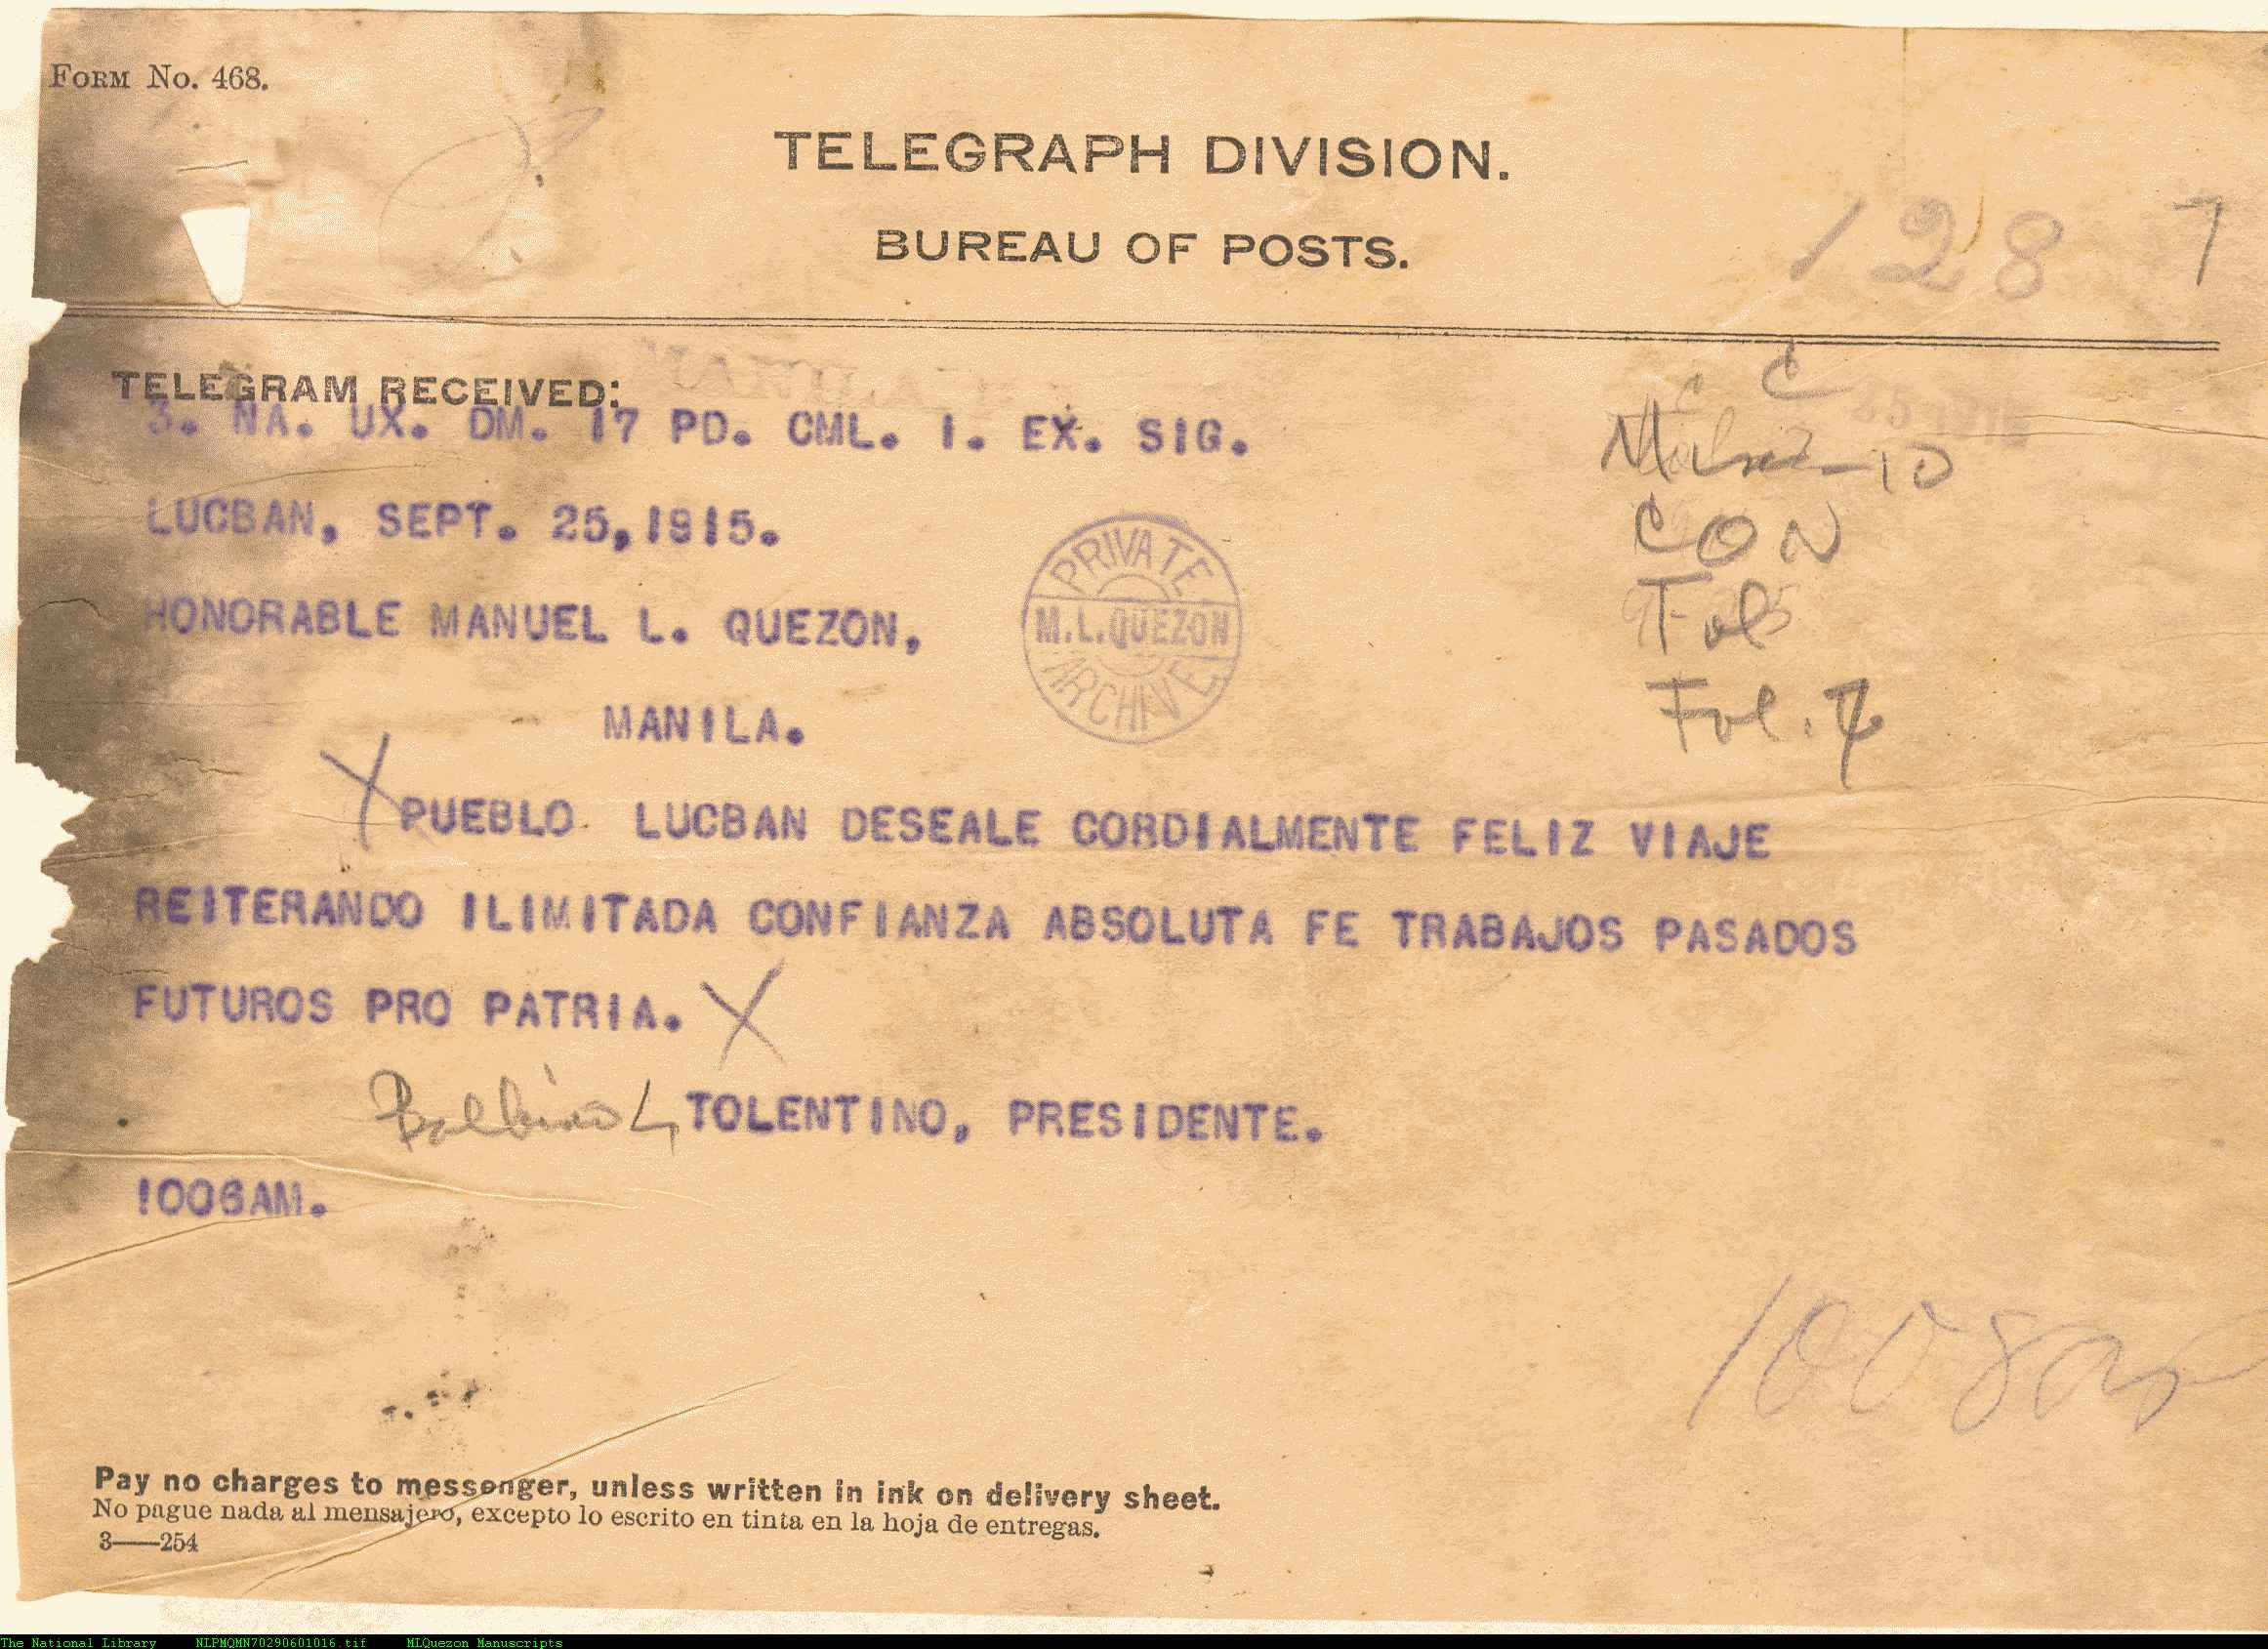 FORM No. 468.
TELEGRAPH DIVISION.
BUREAU OF POSTS.
128 7
TELEGRAM RECEIVED:
3. NA. UX. DM. 17 PD. CML. 1. EX. SIG.
C
C
10
LUCBAN, SEPT. 25,1915.
CON
HONORABLE MANUEL L. QUEZON,
PRIVATE
M.L.QUEZON
ARCHIVE
Fol. 7
MANILA.
X PUEBLO LUCBAN DESEALE CORDIALMENTE FELIZ VIAJE
REITERANDO ILIMITADA CONFIANZA ABSOLUTA FE TRABAJOS PASADOS
FUTUROS PRO PATRIA. X
Balbino L, TOLENTINO, PRESIDENTE.
1006AM.
Pay no charges to messenger, unless written in ink on delivery sheet.
No pague nada al mensajero, excepto lo escrito en tinta en la hoja de entregas.
3——254
The National Library NLPMQMN70290601016.tif MLQuezon Manuscripts